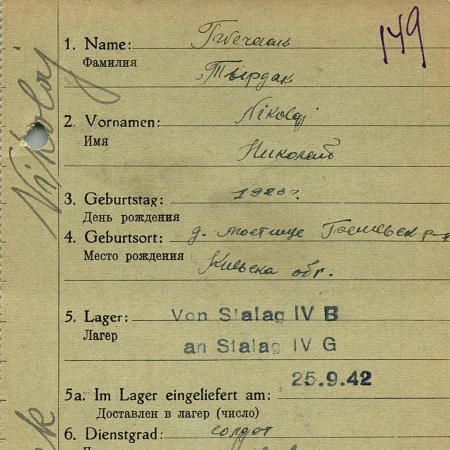 149
1. Name:
Фамилия
Тырдак
2. Vornamen: Nikolaj
Имя
Николай
Nikolaj
3. Geburtstag: 1920 г.
День рождения
4. Geburtsort: д.
Место рождения
обл.
5. Lager: Von Stalag IV B
Лагер
an Stalag IV G
25.9.42
5a. Im Lager eingeliefert am:
Доставлен в лагер (число)
6. Dienstgrad: солдат